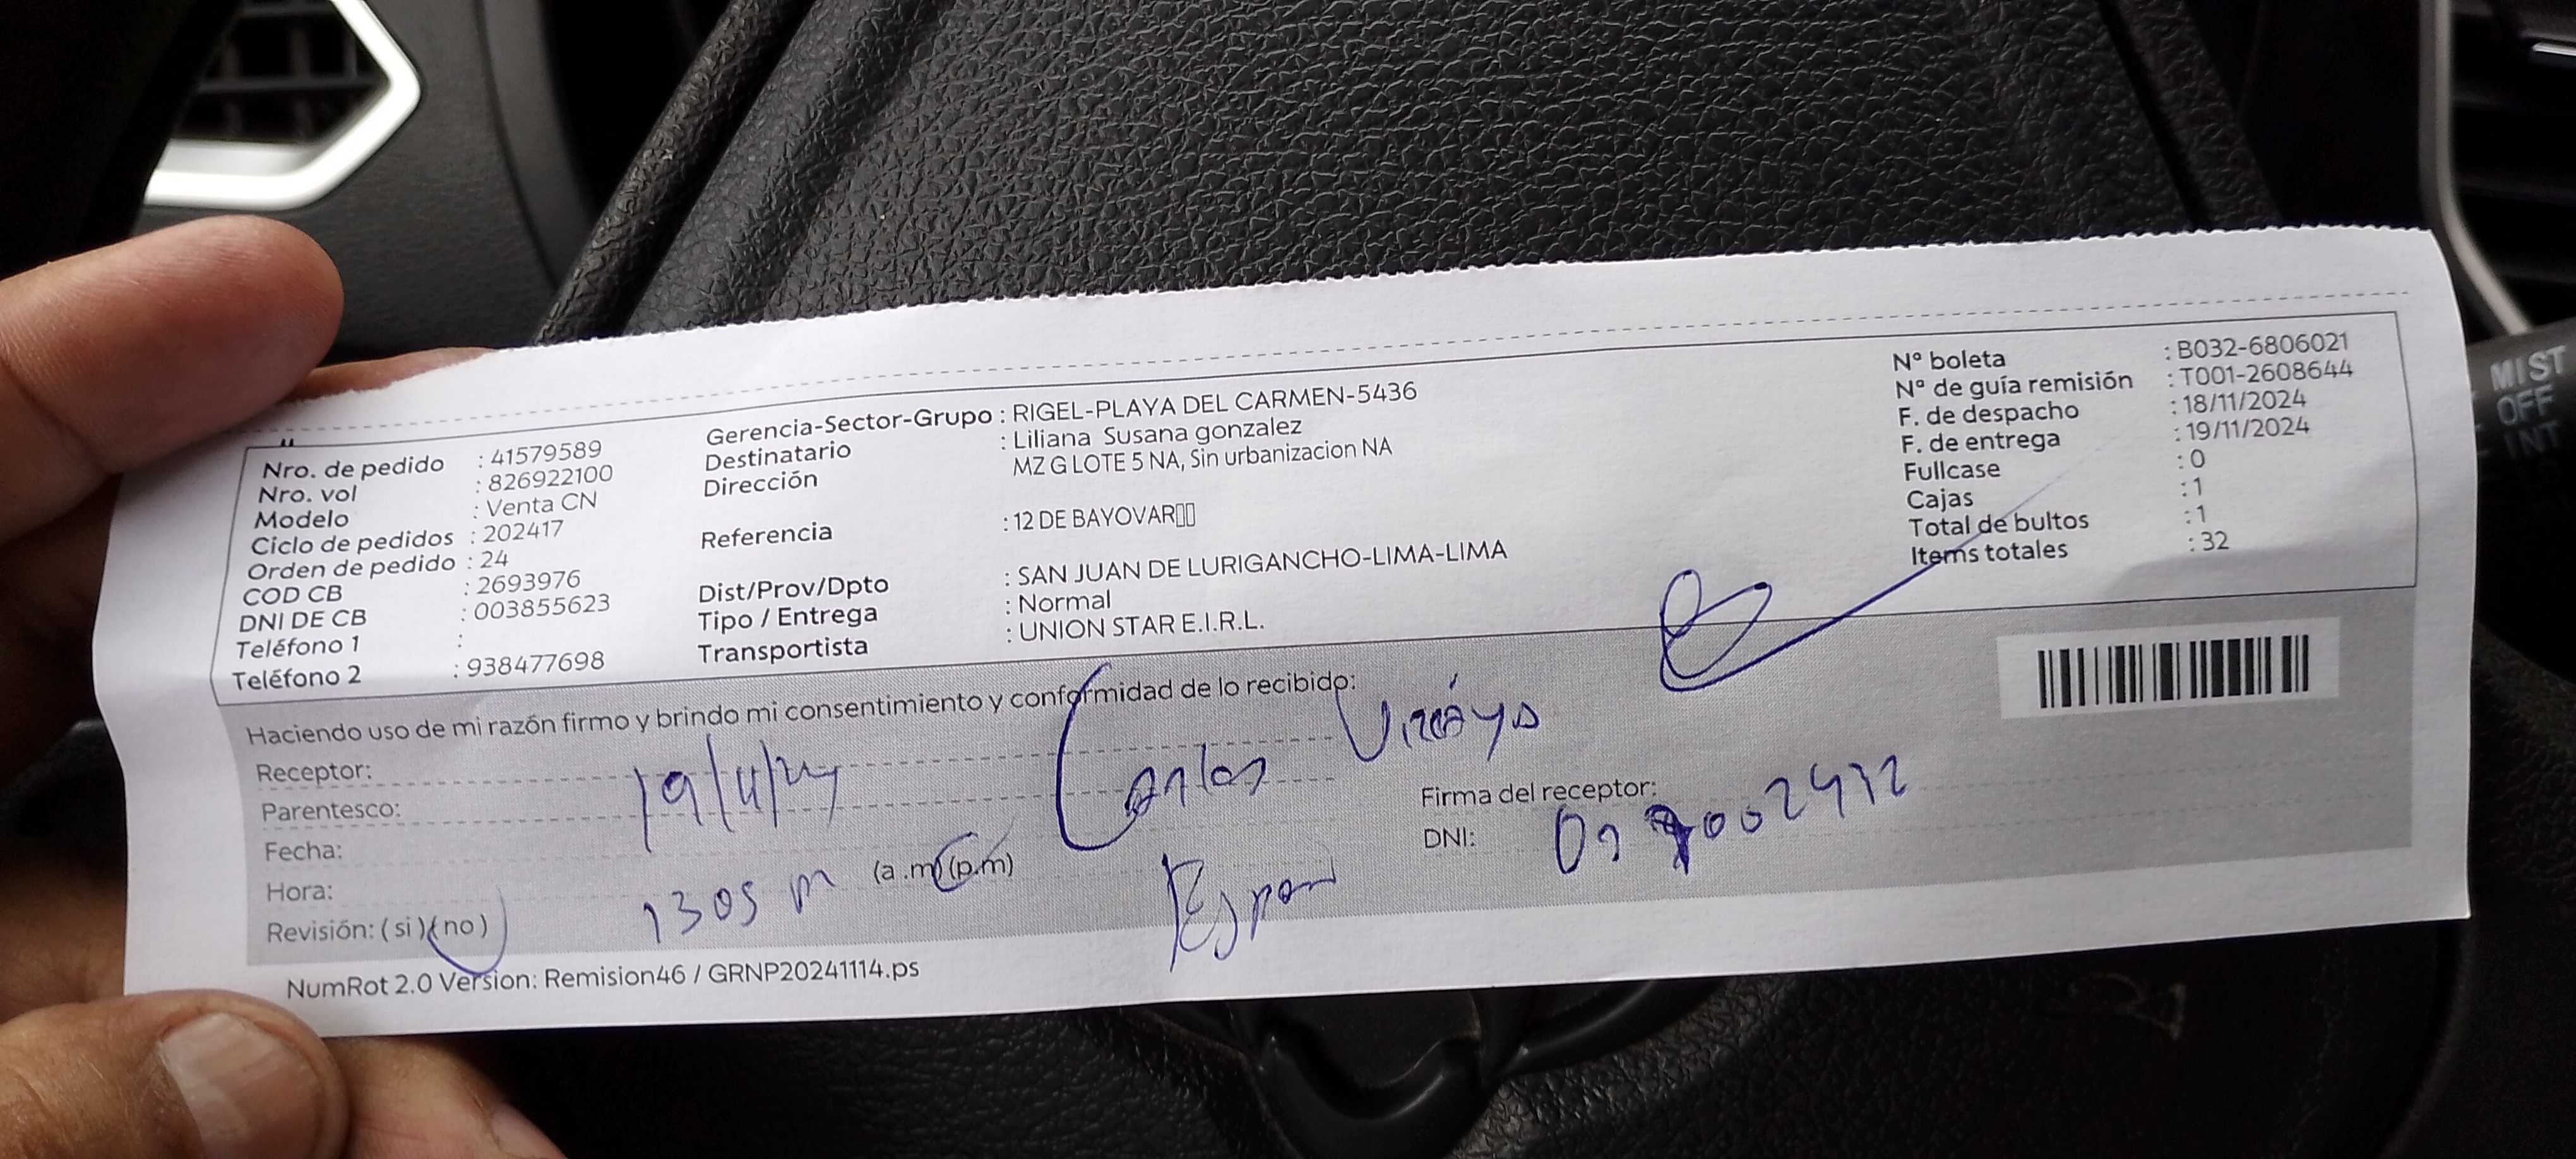 Nro. de pedido : 41579589
Nro. vol : 826922100
Modelo : Venta CN
Ciclo de pedidos : 202417
Orden de pedido : 24
COD CB : 2693976
DNI DE CB : 003855623
Teléfono 1 :
Teléfono 2 : 938477698
Gerencia-Sector-Grupo : RIGEL-PLAYA DEL CARMEN-5436
Destinatario : Liliana Susana gonzalez
Dirección MZ G LOTE 5 NA, Sin urbanizacion NA
Referencia : 12 DE BAYOVAR
Dist/Prov/Dpto : SAN JUAN DE LURIGANCHO-LIMA-LIMA
Tipo / Entrega : Normal
Transportista : UNION STAR E.I.R.L.
Nº boleta : B032-6806021
Nº de guía remisión : T001-2608644
F. de despacho : 18/11/2024
F. de entrega : 19/11/2024
Fullcase : 0
Cajas : 1
Total de bultos : 1
Items totales : 32
Haciendo uso de mi razón firmo y brindo mi consentimiento y conformidad de lo recibido:
Receptor: Carlos
Parentesco:
Fecha: 19/11/24
Hora: 1305 m (a .m) (p.m)
Revisión: ( si ) ( no )
Firma del receptor:
DNI:
NumRot 2.0 Version: Remision46 / GRNP20241114.ps
MIST
OFF
INT